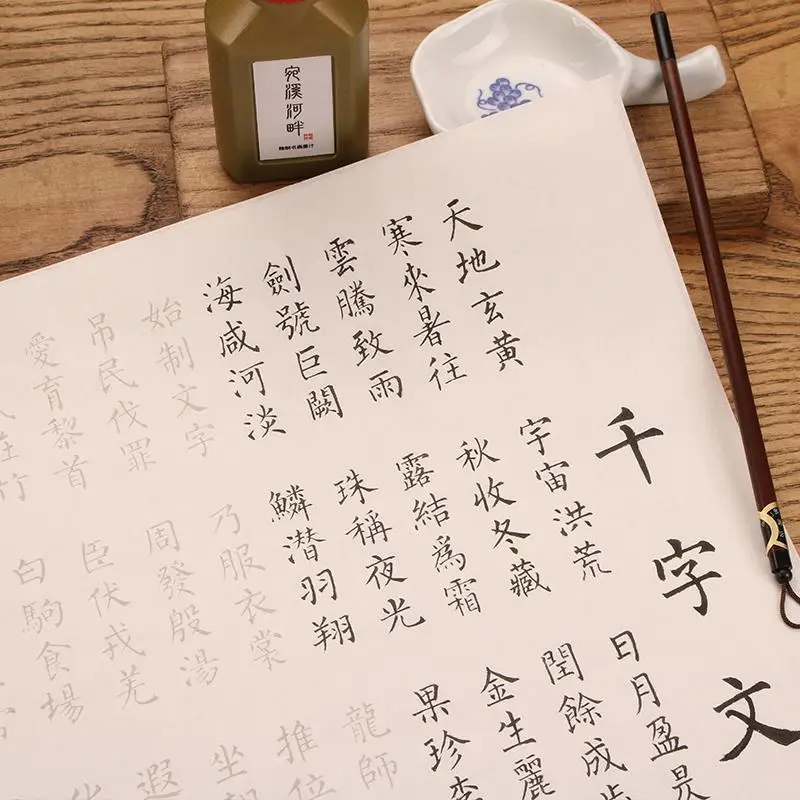 宛溪河畔
精制书画墨汁
千字文
天地玄黃 宇宙洪荒 日月盈昃
寒來暑往 秋收冬藏 閏餘成
雲騰致雨 露結爲霜 金生麗
劍號巨闕 珠稱夜光 果珍李
海咸河淡 鱗潜羽翔 龍師
始制文字 乃服衣裳 推位
吊民伐罪 周發殷湯 坐
愛育黎首 臣伏戎羌 遐
在竹 白駒食場